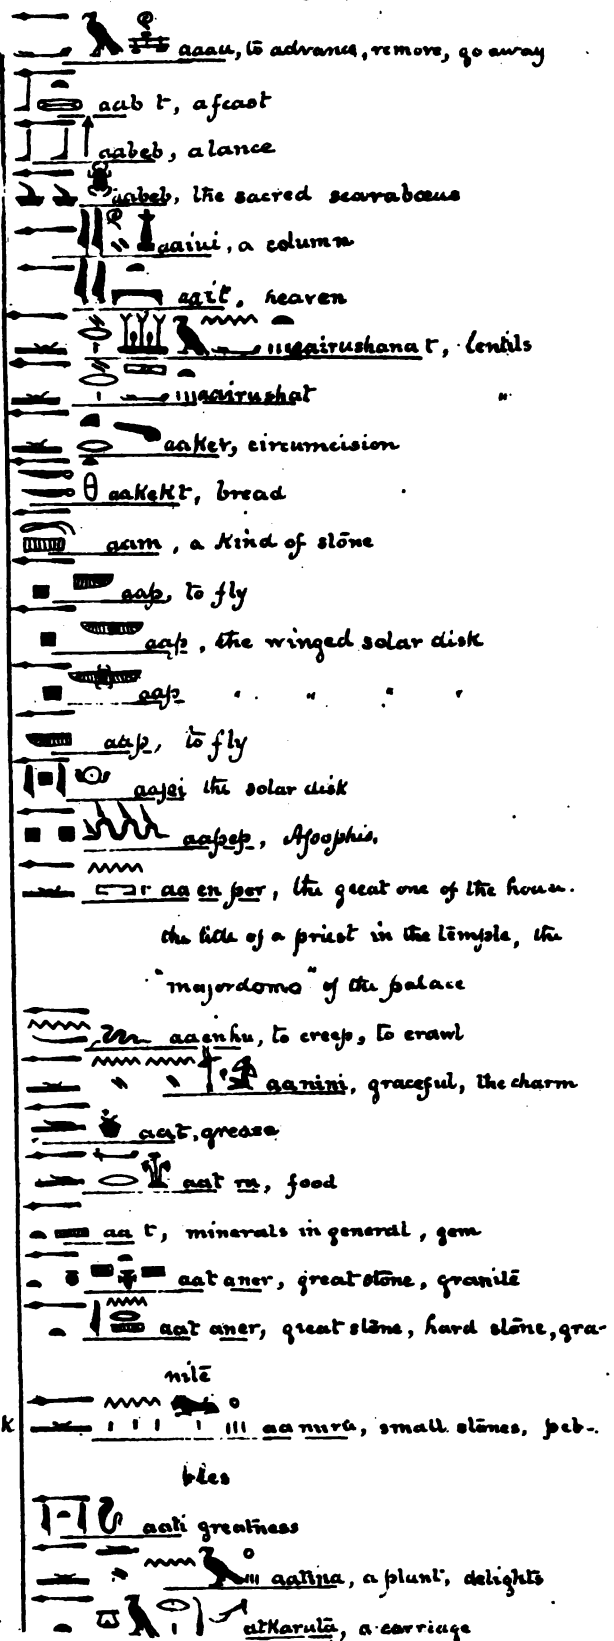 aaau, to advance, remove, go away
aab t, a feast
aabeb, a lance
aabeb, the sacred scarabœus
aaiui, a column
aait, heaven
aairushana t, lentils
aairushat "
aaker, circumcision
aakekt, bread
aam, a kind of stone
aap, to fly
aap, the winged solar disk
aap " " " "
aap, to fly
aapei the solar disk
aapep, Apophis.
aa en per, the great one of the house.
the title of a priest in the temple, the
"majordomo" of the palace
aaenhu, to creep, to crawl
aanini, graceful, the charm
aat, grease
aat ru, food
aa t, minerals in general, gem
aat aner, great stone, granite
aat aner, great stone, hard stone, gra-
nite
K aa nura, small stones, peb-
bles
aati greatness
aatina, a plant, delights
atkaruta, a carriage